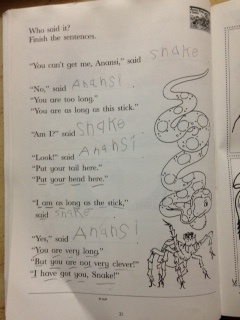 Who said it?
Finish the sentences.
"You can't get me, Anansi," said snake
"No," said Anansi
"You are too long."
"You are as long as this stick."
"Am I?" said snake
"Look!" said Anansi
"Put your tail here."
"Put your head here."
"I am as long as the stick,"
said snake
"Yes," said Anansi
"You are very long."
"But you are not very clever!"
"I have got you, Snake!"
31